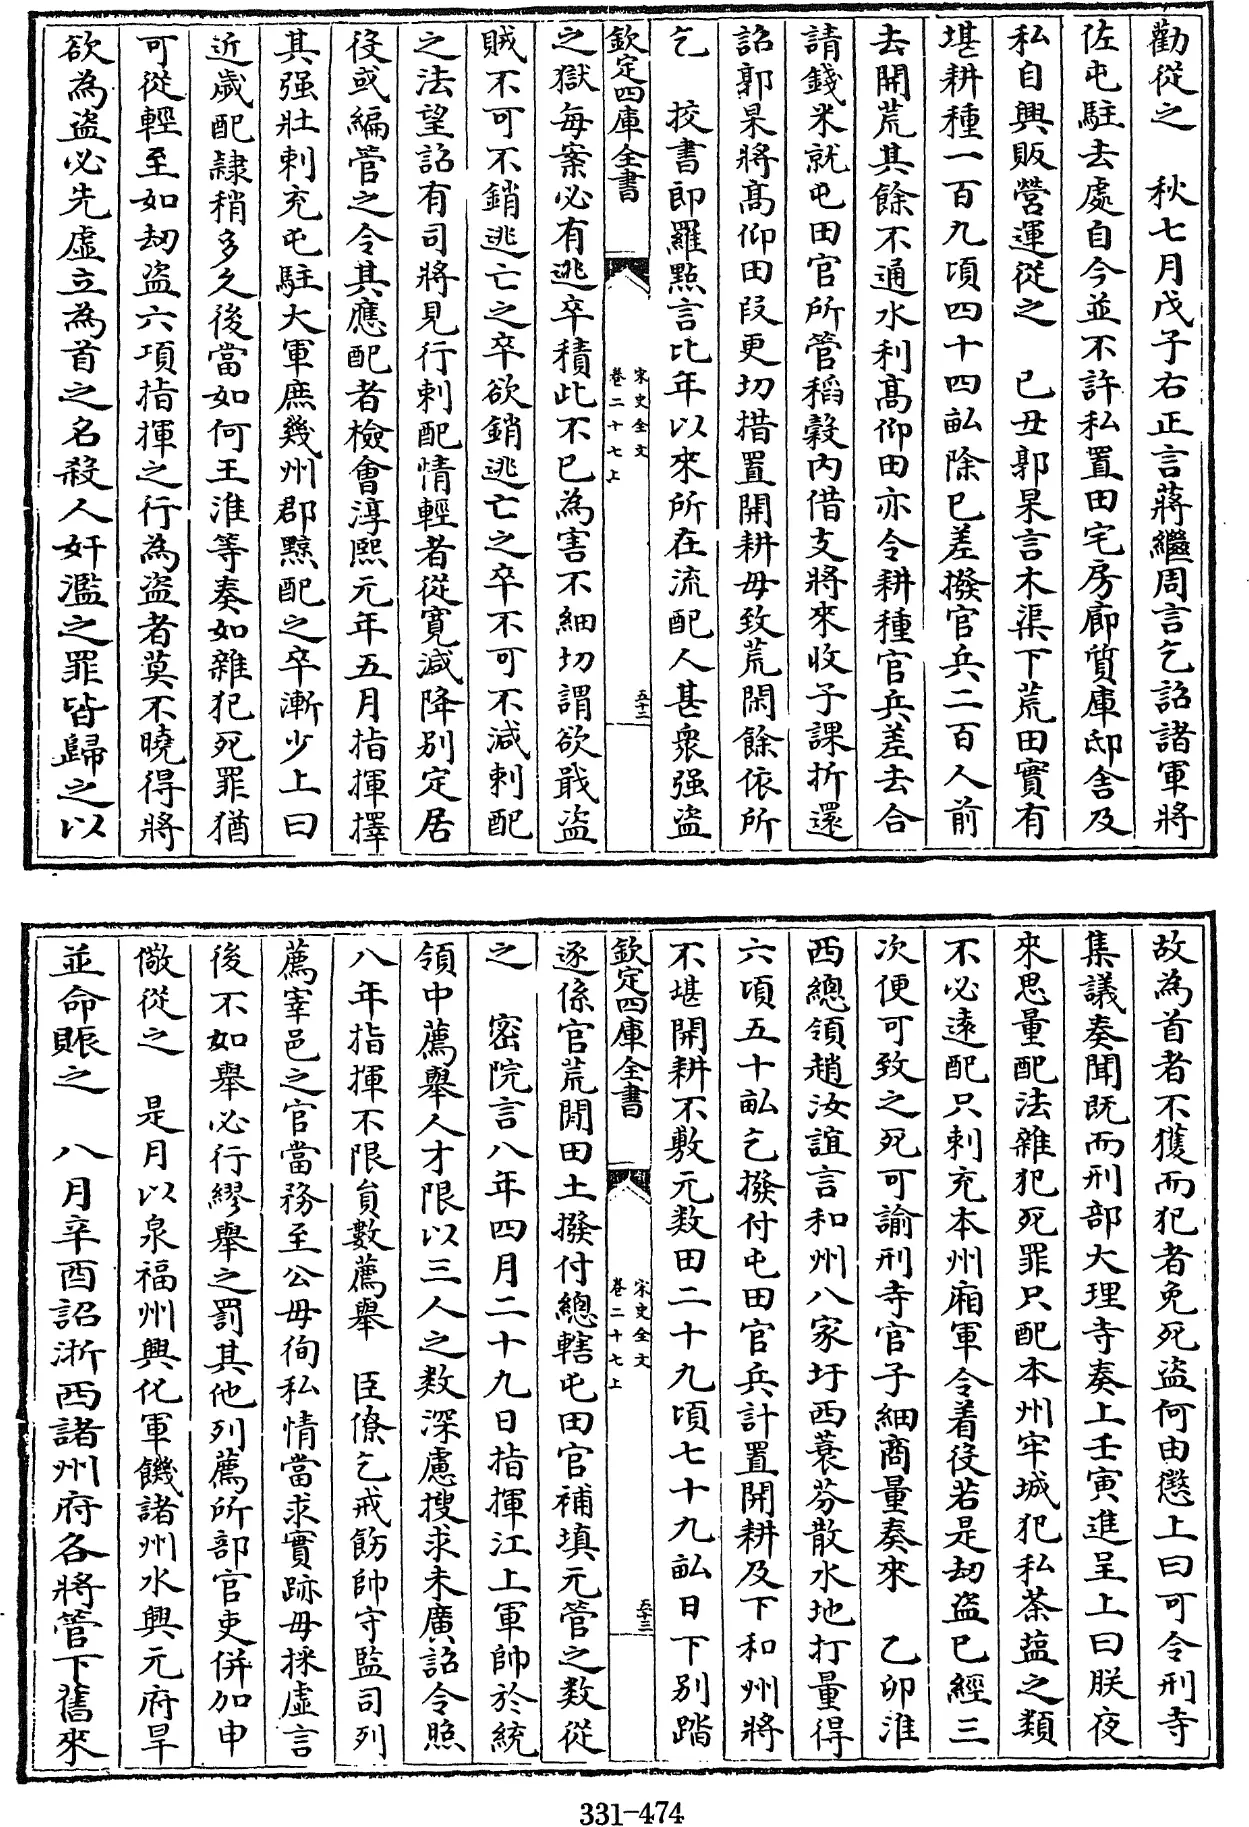 勸從之　秋七月戊子右正言蔣繼周言乞詔諸軍將
佐屯駐去處自今並不許私置田宅房廊質庫邸舍及
私自興販營運從之　己丑郭杲言木渠下荒田實有
堪耕種一百九頃四十四畝除已差撥官兵二百人前
去開荒其餘不通水利髙仰田亦令耕種官兵差去合
請錢米就屯田官所管稻穀内借支將來收子課折還
詔郭杲將髙仰田段更切措置開耕毋致荒閑餘依所
乞　挍書郎羅點言比年以來所在流配人甚衆强盜
欽定四庫全書
宋史全文
卷二十七上
五十二
之獄每案必有逃卒積此不已為害不細切謂欲戢盜
賊不可不銷逃亡之卒欲銷逃亡之卒不可不減刺配
之法望詔有司將見行刺配情輕者從寛減降别定居
役或編管之令其應配者檢會淳熙元年五月指揮擇
其强壯刺充屯駐大軍庶幾州郡黥配之卒漸少上曰
近歲配隷稍多久後當如何王淮等奏如雜犯死罪猶
可從輕至如刼盜六項指揮之行為盜者莫不曉得將
欲為盜必先虛立為首之名殺人奸濫之罪皆歸之以
故為首者不獲而犯者免死盜何由懲上曰可令刑寺
集議奏聞既而刑部大理寺奏上壬寅進呈上曰朕夜
來思量配法雜犯死罪只配本州牢城犯私茶塩之類
不必遠配只刺充本州廂軍令着役若是刼盜已經三
次便可致之死可諭刑寺官子細商量奏來　乙卯淮
西總領趙汝誼言和州八家圩西蓑芬散水地打量得
六頃五十畝乞撥付屯田官兵計置開耕及下和州將
不堪開耕不敷元数田二十九頃七十九畝日下别踏
欽定四庫全書
宋史全文
卷二十七上
五十三
逐係官荒閒田土撥付總轄屯田官補填元管之数從
之　密院言八年四月二十九日指揮江上軍帥於統
領中薦舉人才限以三人之数深慮搜求未廣詔令照
八年指揮不限員數薦舉　臣僚乞戒飭帥守監司列
薦宰邑之官當務至公毋徇私情當求實跡毋採虛言
後不如舉必行繆舉之罰其他列薦所部官吏併加申
儆從之　是月以泉福州興化軍饑諸州水興元府旱
並命賑之　八月辛酉詔浙西諸州府各將管下舊來
331-474